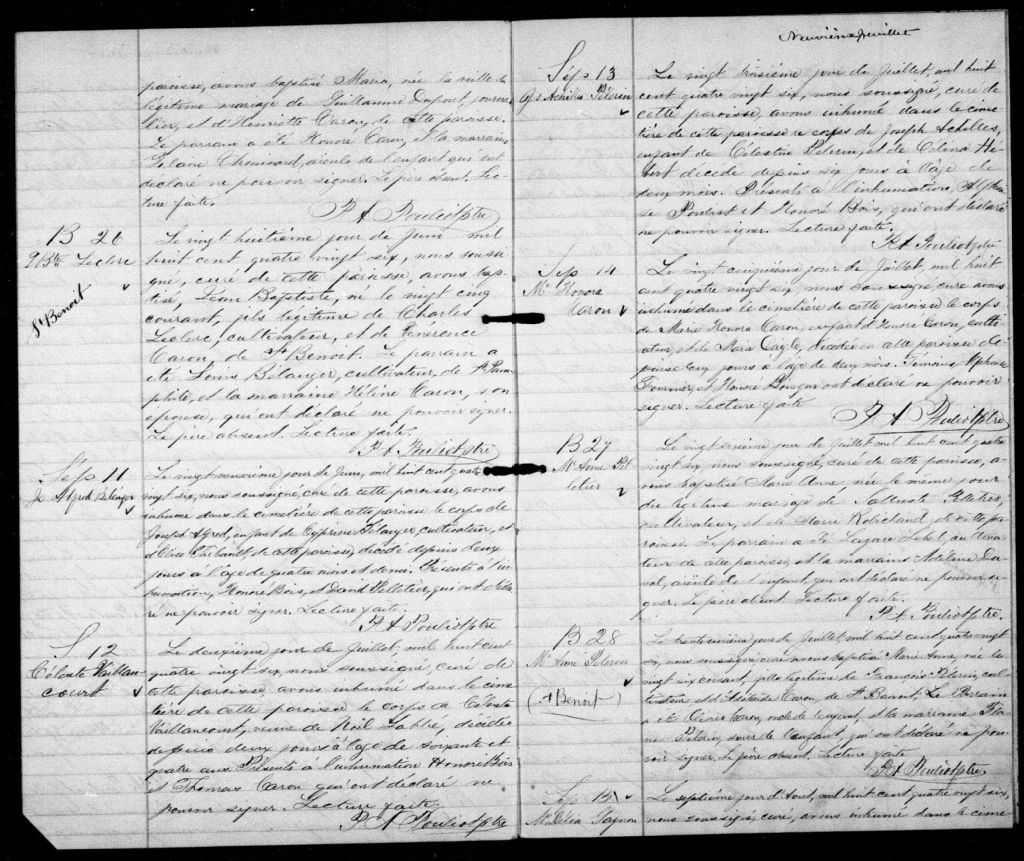 paroisse, avons baptisé Maria, née la veille du
légitime mariage de Guillaume Dupont, journa-
lier, et d'Henriette Caron, de cette paroisse.
Le parrain a été Honoré Caron, et la marraine
Chouinard, aieuls de l'enfant qui ont
déclaré ne pouvoir signer. Le père absent. Lec-
ture faite.
P A Pouliot Ptre
B 26
J Bte Leclerc
St Benoit
Le vingt huitième jour de Juin mil
huit cent quatre vingt six, nous soussi-
gné, curé de cette paroisse, avons bap-
tisé, Jean Baptiste, né le vingt cinq
courant, fils légitime de Charles
Leclerc, cultivateur, et de
Caron, de St Benoit. Le parrain a
été Louis Bélanger, cultivateur, de St Pam-
phile, et la marraine Hélène Caron, son
épouse, qui ont déclaré ne pouvoir signer.
Le père absent. Lecture faite.
P A Pouliot Ptre
Sép 11
J Alfred Bélanger
Le vingt neuvième jour de Juin, mil huit cent quatre
vingt six, nous soussigné, curé de cette paroisse, avons
inhumé dans le cimetière de cette paroisse le corps de
Joseph Alfred, enfant de Cyprien Bélanger, cultivateur, et
Thibault, de cette paroisse, décédé depuis deux
jours à l'âge de quatre mois et demi. Présents à l'in-
humation, Honoré Bois, et David Pelletier, qui ont décla-
ré ne pouvoir signer. Lecture faite.
P A Pouliot Ptre
S. 12
Céleste Vaillan-
court
Le deuxième jour de Juillet, mil huit cent
quatre vingt six, nous soussigné, curé de
cette paroisse, avons inhumé dans le cime-
tière de cette paroisse le corps de Céleste
Vaillancourt, veuve de Noël Labbé, décédée
depuis deux jours à l'âge de soixante et
quatre ans. Présents à l'inhumation Honoré Bois
et Thomas Caron qui ont déclaré ne
pouvoir signer. Lecture faite.
P A Pouliot Ptre
Neuvième feuillet
Sép 13
J Achilles Pélerin
Le vingt troisième jour de Juillet, mil huit
cent quatre vingt six, nous soussigné, curé de
cette paroisse, avons inhumé dans le cime-
tière de cette paroisse le corps de Joseph Achilles,
enfant de Célestin Pélerin, et de Célina Hé-
bert décédé depuis six jours à l'âge de
deux mois. Présents à l'inhumation, Alphon-
se et Honoré Bois, qui ont déclaré
ne pouvoir signer. Lecture faite.
P A Pouliot Ptre
Sép 14
Me Honora
Caron
Le vingt cinquième jour de Juillet, mil huit
cent quatre vingt six, nous soussigné curé avons
inhumé dans le cimetière de cette paroisse le corps
de Marie Honora Caron, enfant d'Honoré Caron, culti-
vateur, et de Marie Daigle, décédée en cette paroisse de-
puis jours à l'âge de deux mois. Témoins Alphonse
Fournier, et Honoré ont déclaré ne pouvoir
signer. Lecture faite
P A Pouliot Ptre
B 27
Me Anne Pel-
letier
Le vingt sixième jour de Juillet mil huit cent quatre
vingt six, nous soussigné, curé de cette paroisse, a-
vons baptisé Marie Anne née le même jour
du légitime mariage de Salluste Pelletier,
cultivateur, et de Marie Robichaud, de cette pa-
roisse. Le parrain a été Lazare Lebel, cultiva-
teur de cette paroisse, et la marraine Adeline Du-
val, aieule de l'enfant, qui ont déclaré ne pouvoir si-
gner. Le père absent. Lecture faite.
P A Pouliot Ptre.
B 28
Me Anne Pélerin
(St Benoit)
Le trente unième jour de Juillet, mil huit cent quatre vingt
six, nous soussigné curé avons baptisé Marie Anne, née le
vingt six courant, fille légitime de François Pélerin, cul-
tivateur et d'Adelaide Caron, de St Benoit. Le Parrain
a été Olivier Caron, oncle de l'enfant, et la marraine
Pélerin, soeur de l'enfant, qui ont déclaré ne pou-
voir signer. Le père absent. Lecture faite
P A Pouliot Ptre
Sép 15
Me Délia Gagnon
Le septième jour d'Aout, mil huit cent quatre vingt six,
nous soussigné, curé, avons inhumé dans le cime-